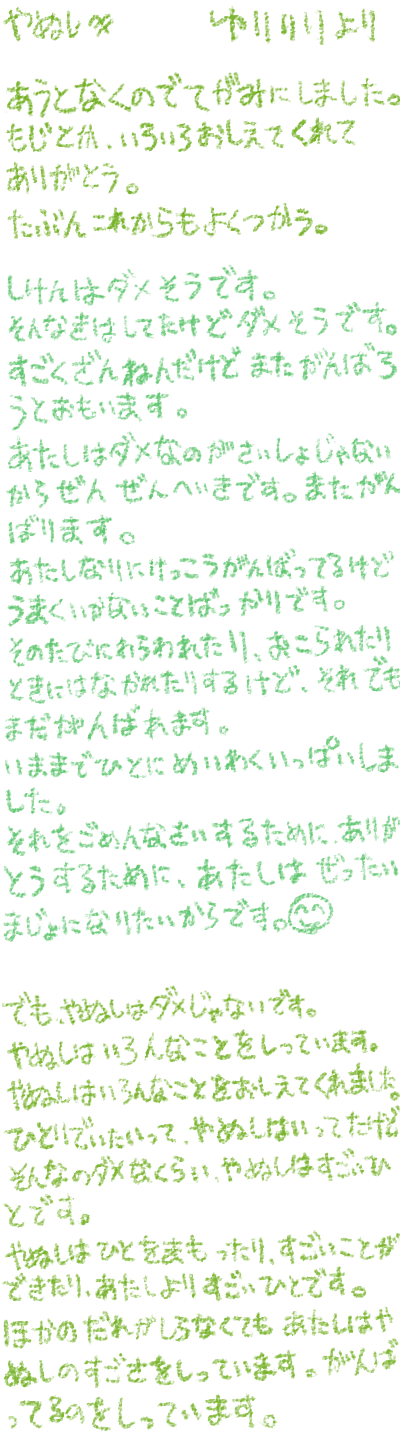 やぬしへ ゆりりりより
あうとなくのでてがみにしました。
もじとか、いろいろおしえてくれて
ありがとう。
たぶんこれからもよくつかう。
しけんはダメそうです。
そんなきはしてたけどダメそうです。
すごくざんねんだけどまたがんばろ
うとおもいます。
あたしはダメなのがさいしょじゃない
からぜんぜんへいきです。またがん
ばります。
あたしなりにけっこうがんばってるけど
うまくいかないことばっかりです。
そのたびにわらわれたり、おこられたり
ときにはなかれたりするけど、それでも
まだがんばれます。
いままでひとにめいわくいっぱいしま
した。
それをごめんなさいするために、ありが
とうするために、あたしはぜったい
まじょになりたいからです。
でも、やぬしはダメじゃないです。
やぬしはいろんなことをしっています。
やぬしはいろんなことをおしえてくれました。
ひとりでいたいって、やぬしはいってたけど
そんなのダメなくらい、やぬしはすごいひ
とです。
やぬしはひとをまもったり、すごいことが
できたり、あたしよりすごいひとです。
ほかのだれがしらなくてもあたしはや
ぬしのすごさをしっています。がんば
ってるのをしっています。